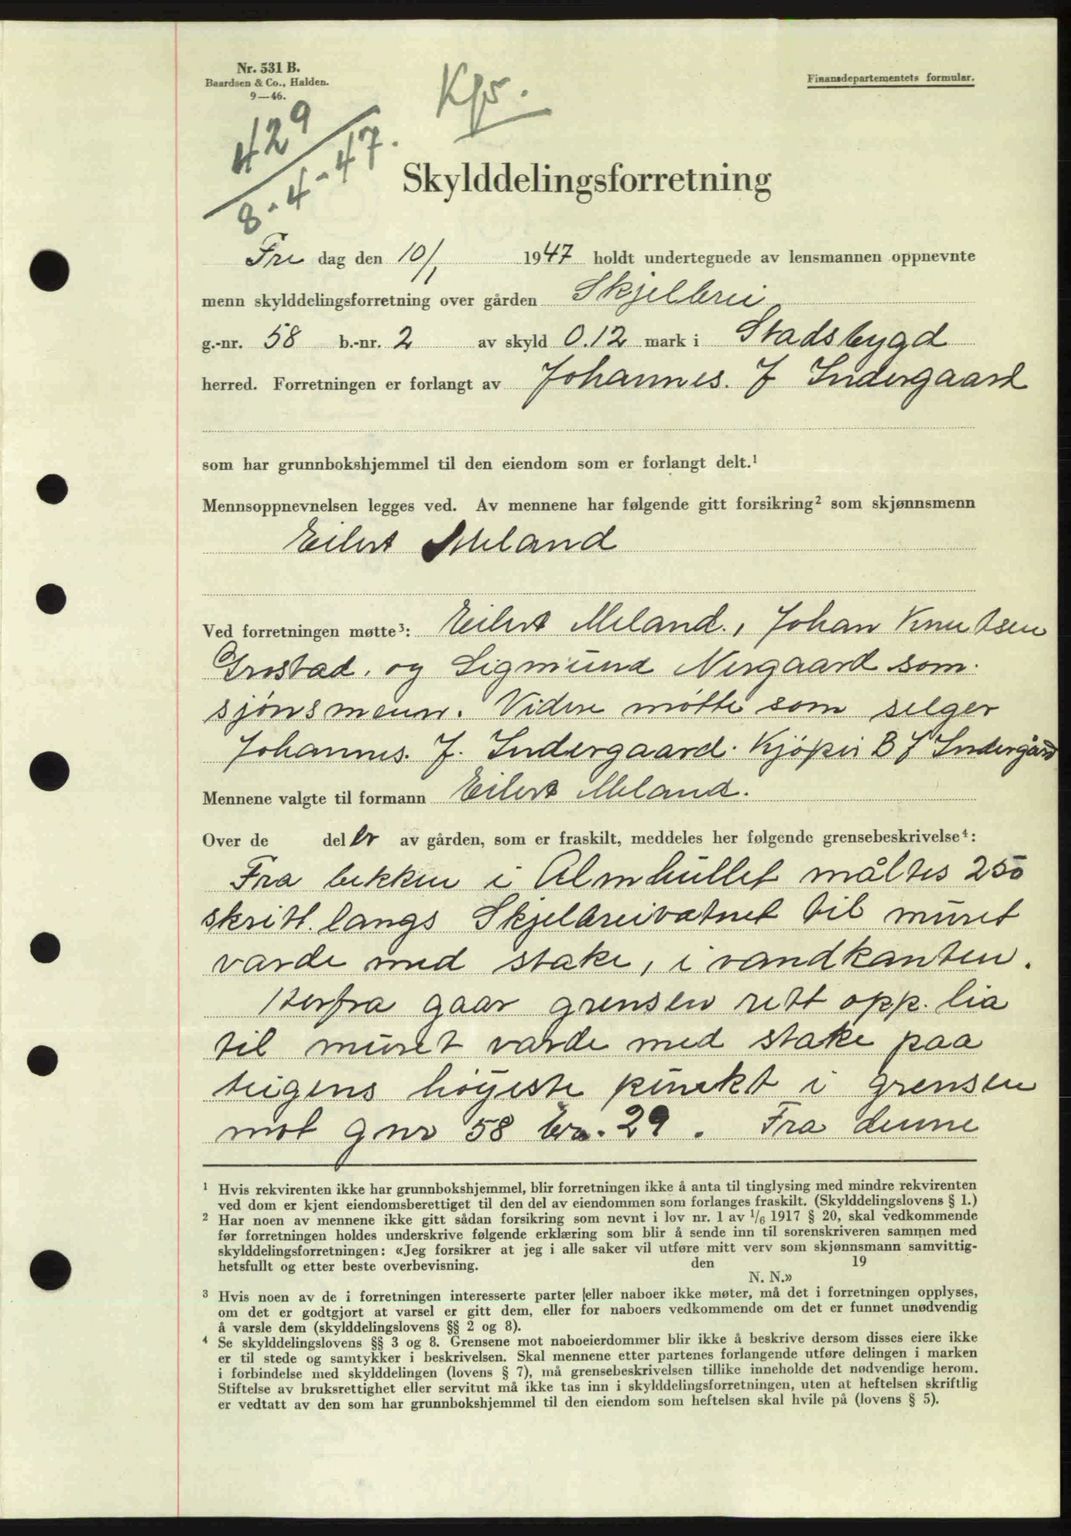 Nr. 531 B.
Baardsen & Co., Halden.
9—46.
Finansdepartementets formular.
Kfr.
429
8-4-47.
Skylddelingsforretning
Fre dag den 10/1 1947 holdt undertegnede av lensmannen oppnevnte
menn skylddelingsforretning over gården Skjelbrei
g.-nr. 58 b.-nr. 2 av skyld 0.12 mark i Stadsbygd
herred. Forretningen er forlangt av Johannes. J Indergaard
som har grunnbokshjemmel til den eiendom som er forlangt delt.¹
Mennsoppnevnelsen legges ved. Av mennene har følgende gitt forsikring² som skjønnsmenn
Eilert Meland
Ved forretningen møtte³: Eilert Meland., Johan Knutsen
Grostad. og Sigmund Nergaard som
sjønsmenn. Videre møtte som selger
Johannes. J. Indergaard. Kjöper B J Indergård
Mennene valgte til formann Eilert Meland.
Over de deler av gården, som er fraskilt, meddeles her følgende grensebeskrivelse⁴:
Fra bekken i Almhullet måltes 250
skritt langs Skjelbreivatnet til muret
varde med stake, i vandkanten.
Herfra gaar grensen rett opp. lia
til muret varde med stake paa
teigens höyeste punkt i grensen
mot gnr 58 br. 29. Fra denne
¹ Hvis rekvirenten ikke har grunnbokshjemmel, blir forretningen ikke å anta til tinglysing med mindre rekvirenten
ved dom er kjent eiendomsberettiget til den del av eiendommen som forlanges fraskilt. (Skylddelingslovens § 1.)
² Har noen av mennene ikke gitt sådan forsikring som nevnt i lov nr. 1 av 1/6 1917 § 20, skal vedkommende
før forretningen holdes underskrive følgende erklæring som blir å sende inn til sorenskriveren sammen med
skylddelingsforretningen: «Jeg forsikrer at jeg i alle saker vil utføre mitt verv som skjønnsmann samvittig-
hetsfullt og etter beste overbevisning. den 19
N. N.»
³ Hvis noen av de i forretningen interesserte parter eller naboer ikke møter, må det i forretningen opplyses,
om det er godtgjort at varsel er gitt dem, eller for naboers vedkommende om det er funnet unødvendig
å varsle dem (skylddelingslovens §§ 2 og 8).
⁴ Se skylddelingslovens §§ 3 og 8. Grensene mot naboeierdommer blir ikke å beskrive dersom disses eiere ikke
er til stede og samtykker i beskrivelsen. Skal mennene etter partenes forlangende utføre delingen i marken
i forbindelse med skylddelingen (lovens § 7), må grensebeskrivelsen tillike inneholde det nødvendige herom.
Stiftelse av bruksrettighet eller servitut må ikke tas inn i skylddelingsforretningen, uten at heftelsen skriftlig
er vedtatt av den som har grunnbokshjemmel til den eiendom som heftelsen skal hvile på (lovens § 5).